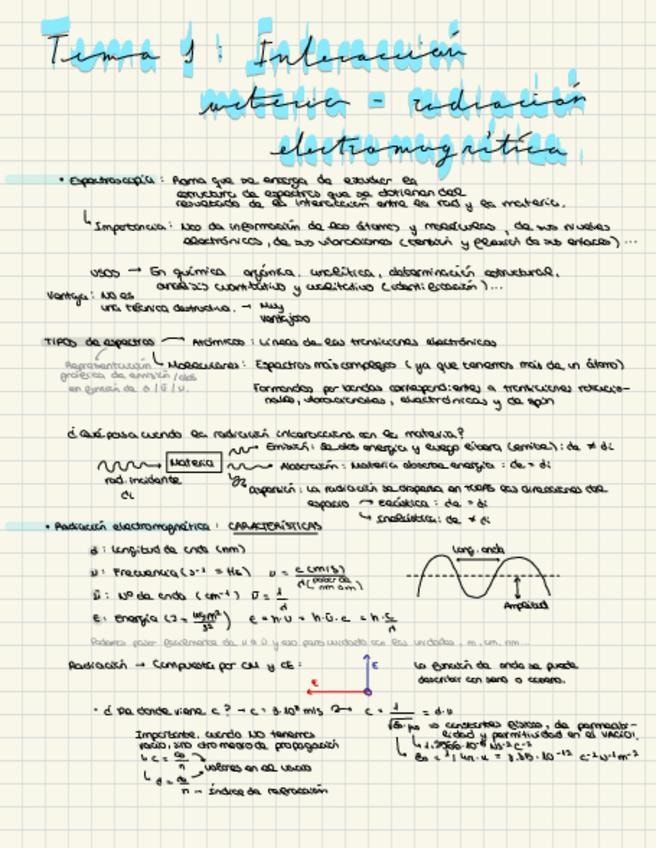 Tema 1: Interacción
materia - radiación
electromagnética.
• Espectroscopia: Rama que se encarga de estudiar la
estructura de espectros que se obtienen del
resultado de la interacción entre la rad y la materia.
Importancia: Nos da información de los átomos y moléculas, de sus niveles
electrónicos, de sus vibraciones (tensión y flexión de sus enlaces)...
usos → En química orgánica, analítica, determinación estructural,
análisis cuantitativo y cualitativo (identificación)...
Ventaja: No es
una técnica destructiva. → Muy
ventajoso
TIPOS de espectros → Atómicos: Líneas de las transiciones electrónicas
Representación
gráfica de emisión/abs
en función de λ/ν̄/ν.
Moleculares: Espectros más complejos (ya que tenemos más de un átomo)
Formandos por bandas correspondientes a transiciones rotacio-
nales, vibracionales, electrónicas y de spin
¿Qué pasa cuando la radiación interacciona con la materia?
Emisión: se dos energía y luego libera (emite): de ≠ di
Materia
Absorción: Materia absorbe energía: de = di
rad. incidente
di
Dispersión: La radiación se dispersa en TODAS las direcciones del
espacio → elástica: de = di
Inelástica: de ≠ di
• Radiación electromagnética: CARACTERÍSTICAS
λ: Longitud de onda (nm)
Long. onda
ν: Frecuencia (s-1 = Hz) ν = c (m/s) / λ
ν̄: Nº de onda (cm-1) ν̄ = 1/λ
Amplitud
E: Energía (J = kg m²/s²) E = h·ν = h·ν̄·c = h·c/λ
Podemos pasar fácilmente de ν a ν̄ y eso pero cuidado con las unidades, m, cm, nm...
Radiación → Compuesta por CM y CE:
E
La función de onda se puede
describir con seno o coseno.
• ¿De donde viene c? → c = 3·10⁸ m/s → c = 1/√(ε₀·μ₀) = λ·ν
constantes físicas, de permeabi-
lidad y permitividad en el VACÍO!
Importante, cuando NO tenemos
vacío, sino otro medio de propagación
c = c₀/n
valores en el vacío
λ = λ₀/n
n → índice de refracción